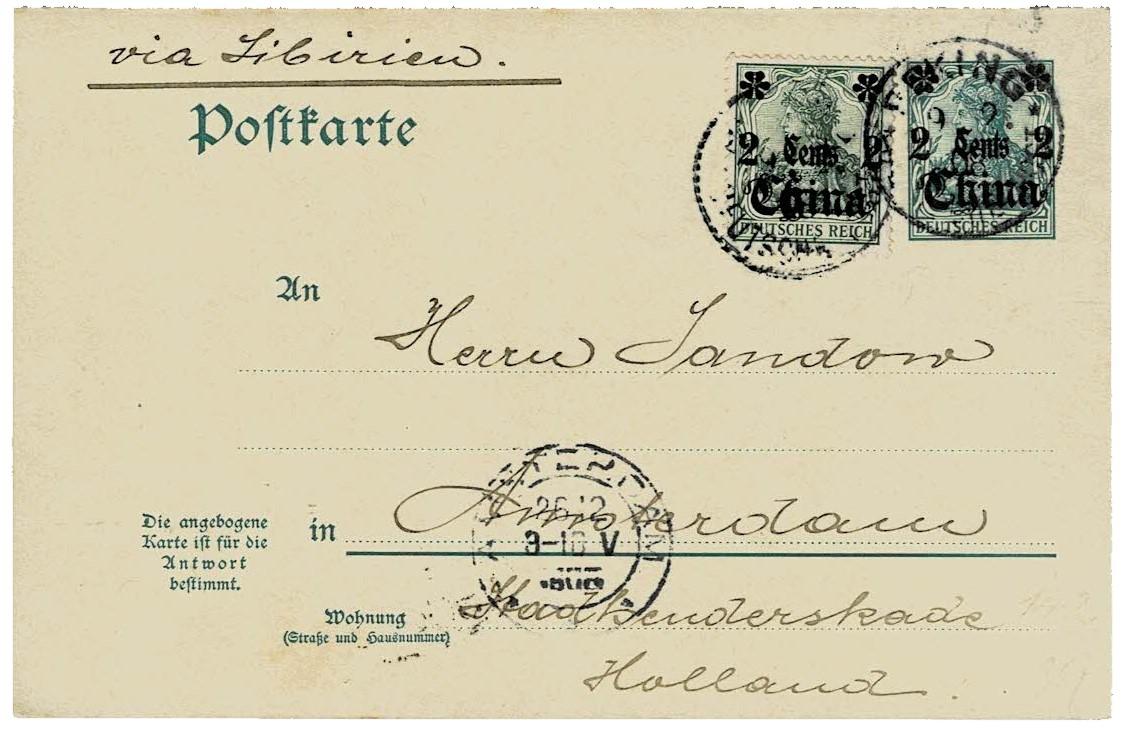 via Sibirien.
Postkarte
2 Cents 2
China
DEUTSCHES REICH
2 Cents 2
China
DEUTSCHES REICH
PEKING
An
Herrn Sandow
AMSTERDAM
26 12
9-10 V
Die angebogene
Karte ist für die
Antwort
bestimmt.
in Amsterdam
Wohnung
(Straße und Hausnummer)
Stadhouderskade
Holland.